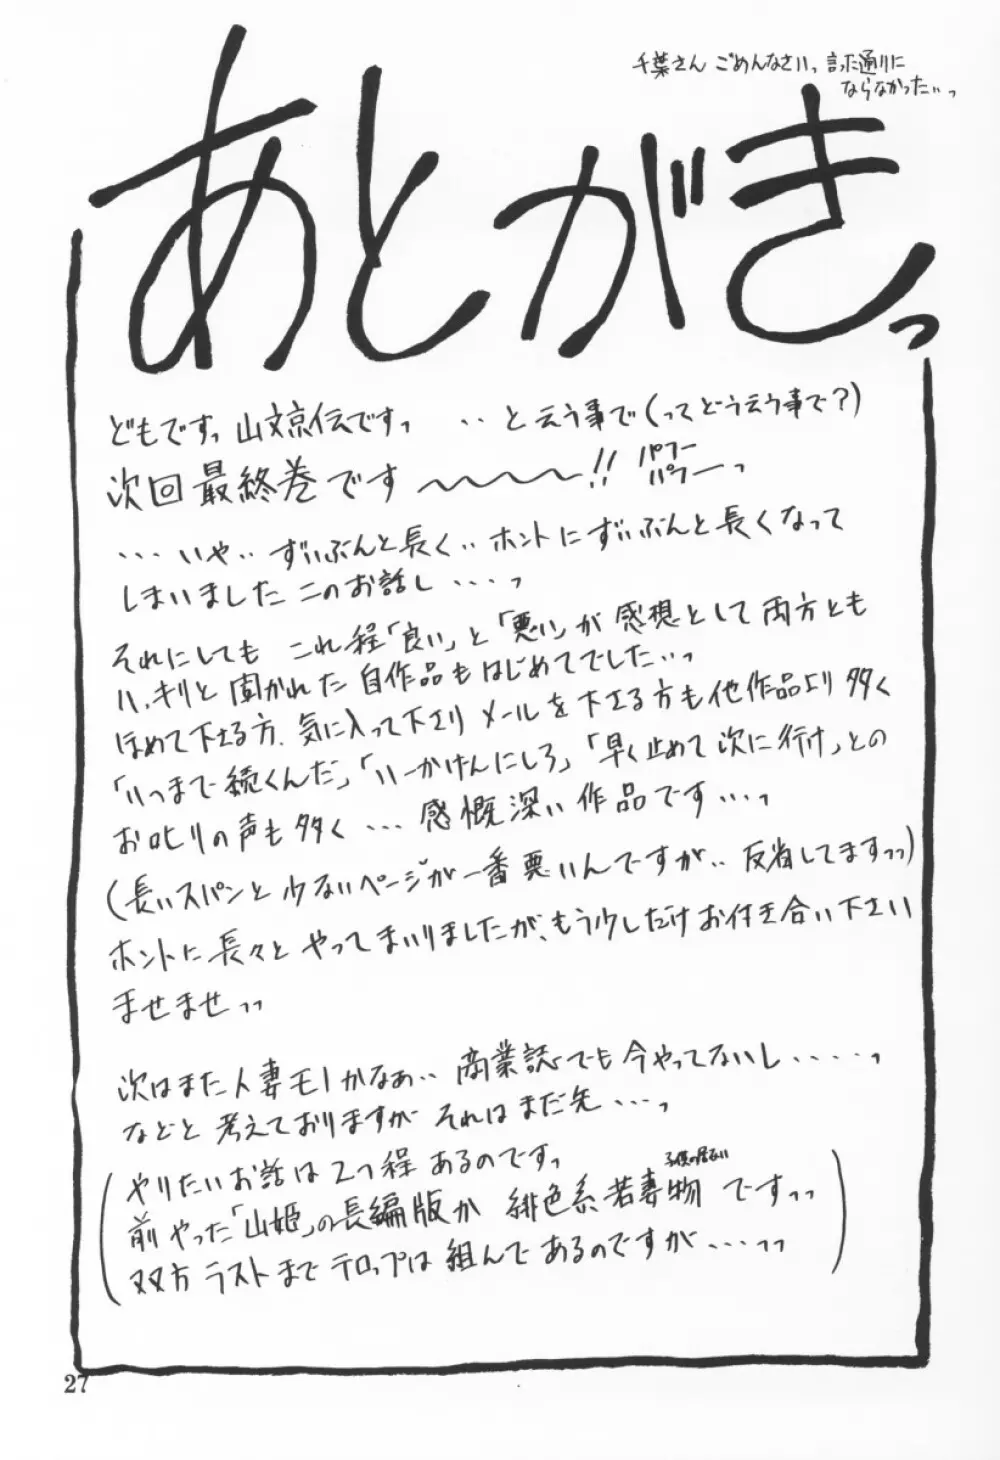 千葉さん ごめんなさいっ 言った通りに
ならなかったいっ
あとがきっ
どもですっ 山文京伝ですっ ‥と云う事で(ってどう云う事で?)
次回最終巻です〜〜〜!! パフーパフーっ
‥‥いや‥ずいぶんと長く‥ホントにずいぶんと長くなって
しまいましたこのお話し‥‥っ
それにしても これ程「良い」と「悪い」が感想として両方とも
ハッキリと聞かれた自作品もはじめてでした‥っ
ほめて下さる方、気に入って下さり メールを下さる方も他作品より多く
「いつまで続くんだ」「いーかげんにしろ」「早く止めて次に行け」との
お叱りの声も多く‥‥感慨深い作品です‥‥っ
(長いスパンと少ないページが一番悪いんですが‥反省してますっっ)
ホントに長々とやってまいりましたが、もう少しだけお付き合い下さい
ませませっっ
次はまた人妻モノかなぁ‥商業誌でも今やってないし‥‥‥っ
などと考えておりますがそれはまだ先‥‥っ
(やりたいお話は2つ程あるのですっ
前やった「山姫」の長編版か 緋色系若妻物ですっっ
子供の居ない
双方ラストまでプロップは組んであるのですが‥‥っっ)
27